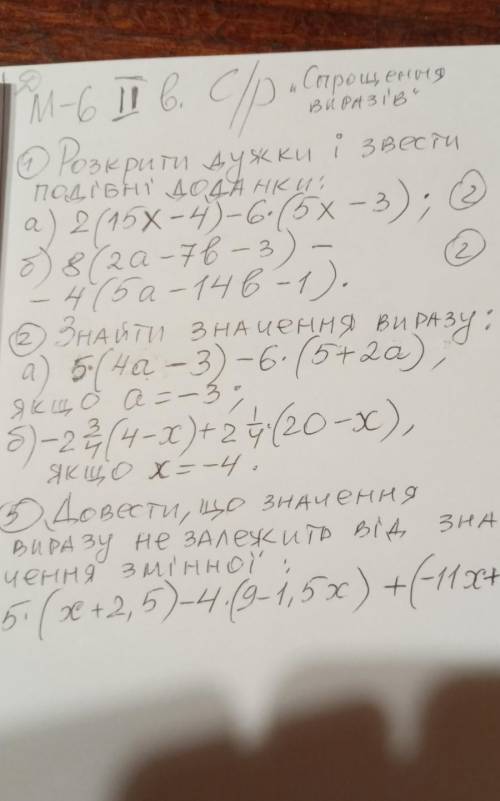 М-6 II в. С/р "Спрощення
виразів"
① Розкрити дужки і звести
подібні доданки:
а) 2(15x-4)-6·(5x-3); ②
б) 8(2a-7b-3)- ②
-4(5a-14b-1).
② Знайти значення виразу:
а) 5·(4a-3)-6·(5+2a),
якщо a=-3;
б) -2 3/4(4-x)+2 1/4·(20-x),
якщо x=-4.
③ Довести, що значення
виразу не залежить від зна
чення змінної:
5·(x+2,5)-4·(9-1,5x)+(-11x+